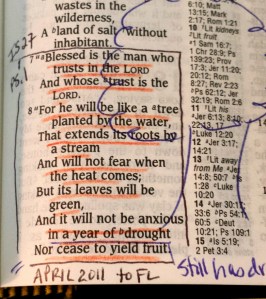 wastes in the
wilderness,
A ᵇland of salt ᶜwithout
inhabitant.
7 "ᵃBlessed is the man who
trusts in the LORD
And whose ᵇtrust is the
LORD.
8 "For he will be like a ᵃtree
planted by the water,
That extends its roots by
a stream
And will not fear when
the heat comes;
But its leaves will be
green,
And it will not be anxious
in a year of ᵇdrought
Nor cease to yield fruit.
APRIL 2011 to FL
IS 27
PS. 1
6:10; Matt
13:15; Mark
2:17; Rom 1:21
10 ¹Lit kidneys
²Lit fruit
ᵃ1 Sam 16:7;
1 Chr 28:9; Ps
139:23; Prov
17:3; Jer 11:20;
20:12; Rom
8:27; Rev 2:23
ᵇPs 62:12; Jer
32:19; Rom 2:6
11 ¹Lit his
ᵃJer 6:13; 8:10;
22:13, 17
ᵇLuke 12:20
12 ᵃJer 3:17;
14:21
13 ¹Lit away
from Me ᵃJer
14:8; 50:7 ᵇIs
1:28 ᶜLuke
10:20
14 ᵃJer 30:17;
33:6 ᵇPs 54:1;
60:5 ᶜDeut
10:21; Ps 109:1
15 ᵃIs 5:19;
2 Pet 3:4